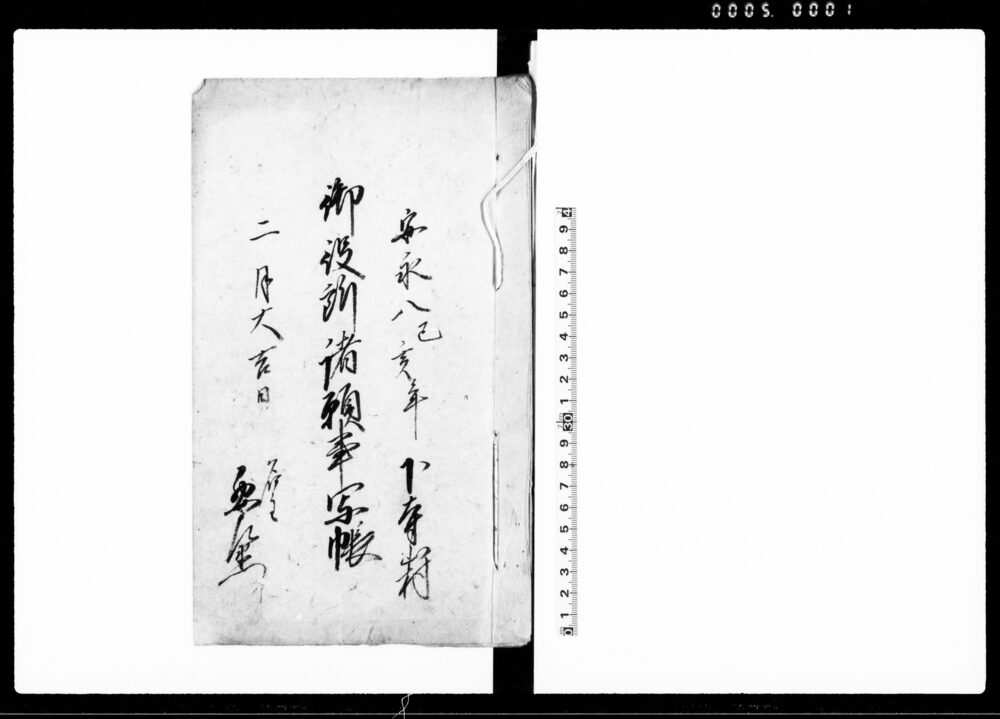 0005. 0001
安永八己亥年 村
御役所諸願事写帳
二月大吉日
名主
4 9 8 7 6 5 4 3 2 1 30 9 8 7 6 5 4 3 2 1